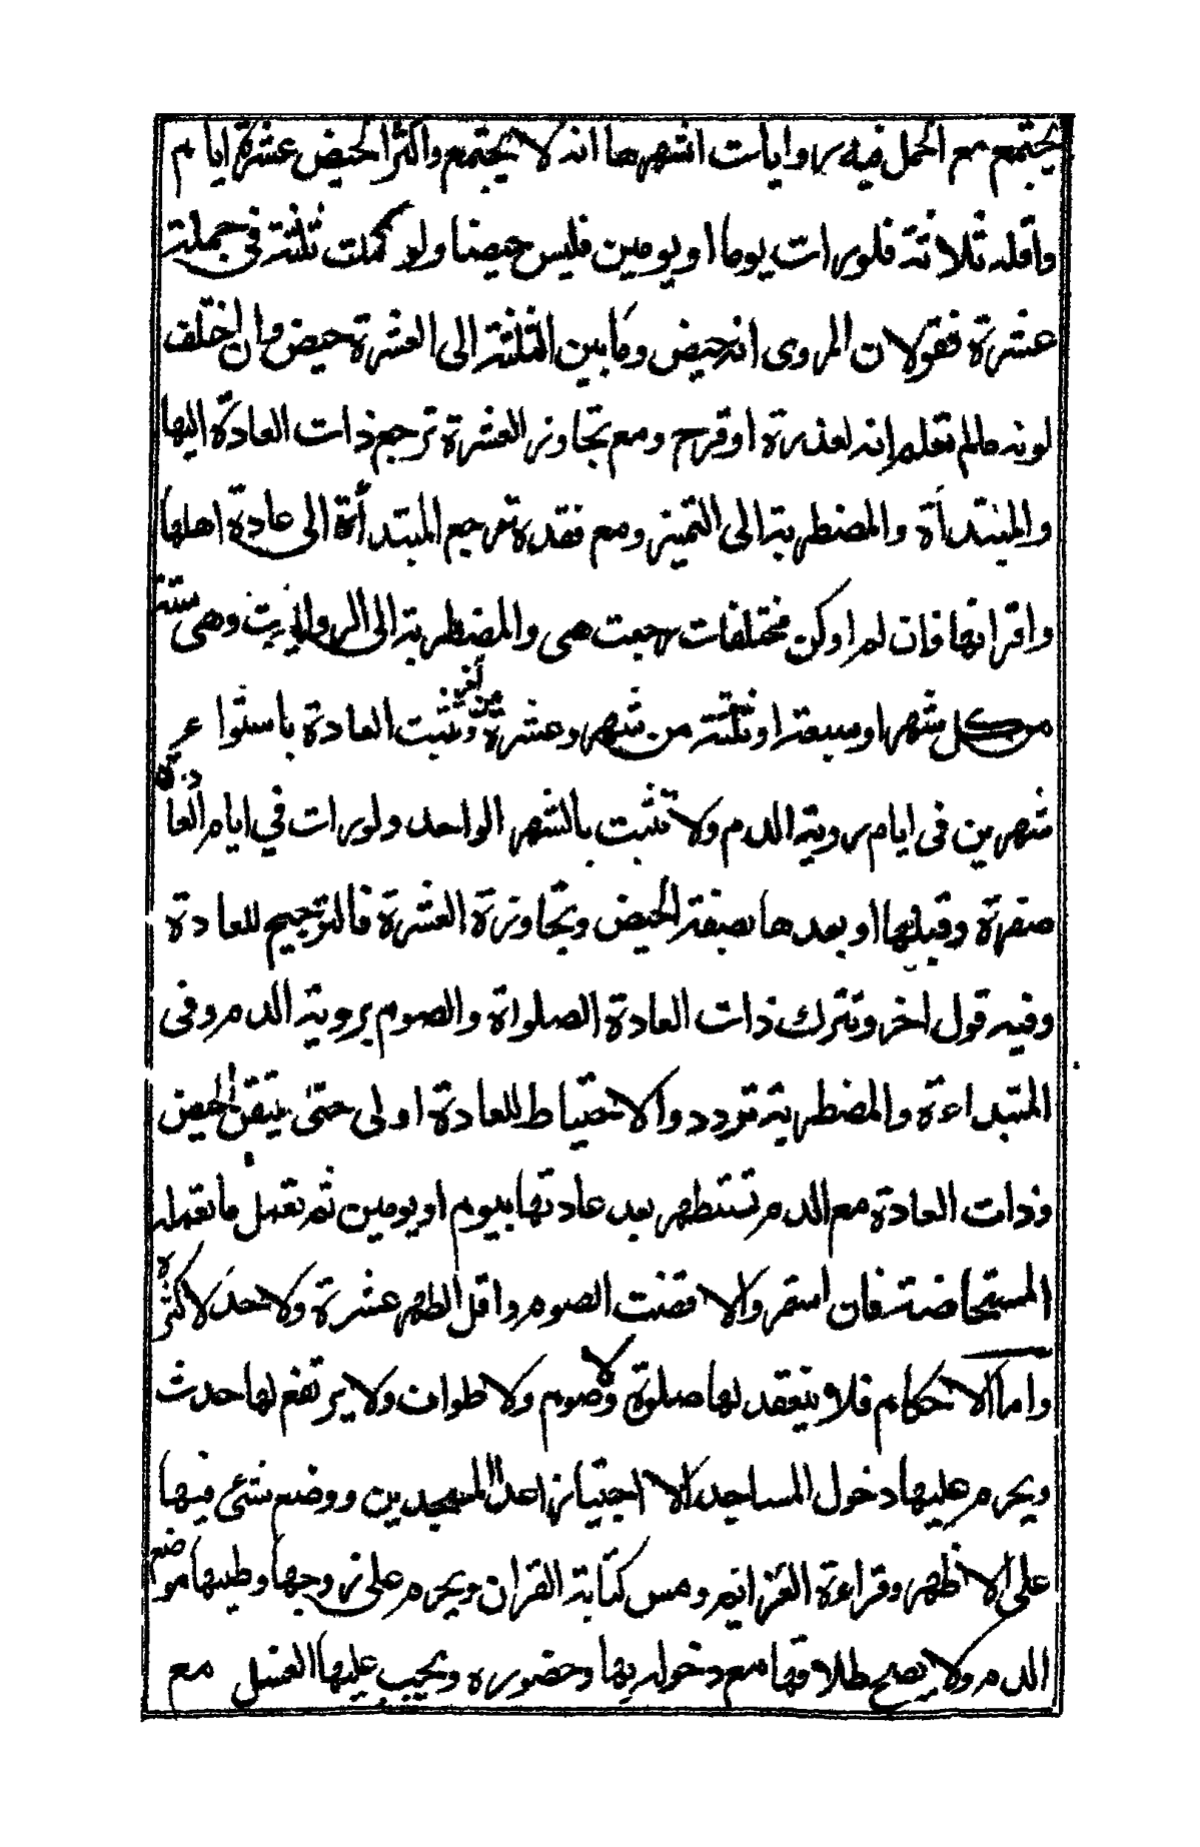 يجتمع مع الحمل فيه روايات اشهرها انه لا يجتمع واكثر الحيض عشرة ايام
واقله ثلاثة فلورات يوما او يومين فليس حيضا ولو كملت ثلثة في جملة
عشرة فقولان المروى انه حيض وما بين الثلثة الى العشرة حيض وان اختلف
لونه مالم تعلم انه لعذرة او قرح ومع تجاوز العشرة ترجع ذات العادة اليها
والمبتدأة والمضطربة الى التميز ومع فقده ترجع المبتدأة الى عادة اهلها
واقرانها فان لم او كن مختلفات رجعت هى والمضطربة الى الروايت وهى ستة
من كل شهر او سبعة او ثلثة من شهر وعشرة من آخر وتثبت العادة باستوا
شهرين في ايام روية الدم ولا تثبت بالشهر الواحد ولورات في ايام العا
صفرة وقبلها او بعدها بصفة الحيض وتجاوزة العشرة فالترجيح للعادة
وفيه قول اخر وتترك ذات العادة الصلواة والصوم بروية الدم وفى
المتبداءة والمضطربة تردد والاحتياط للعادة اولى حتى يتيقن الحيض
وذات العادة مع الدم تستظهر بعد عادتها بيوم او يومين ثم تعمل ما تعمله
المستحاضة فان استمر والا قضت الصوم واقل الطهر عشرة ولا حد لاكثره
واما الاحكام فلا ينعقد لها صلوة ولا صوم ولا طواف ولا يرتفع لها حدث
ويحرم عليها دخول المساجد الا اجتيازا عدا المسجدين ووضع شئ فيها
على الاظهر وقراءة العزائم ومس كتابة القران ويحرم على زوجها وطيها موضع
الدم ولا يصح طلاقها مع دخوله بها وحضوره ويجب عليها الغسل مع